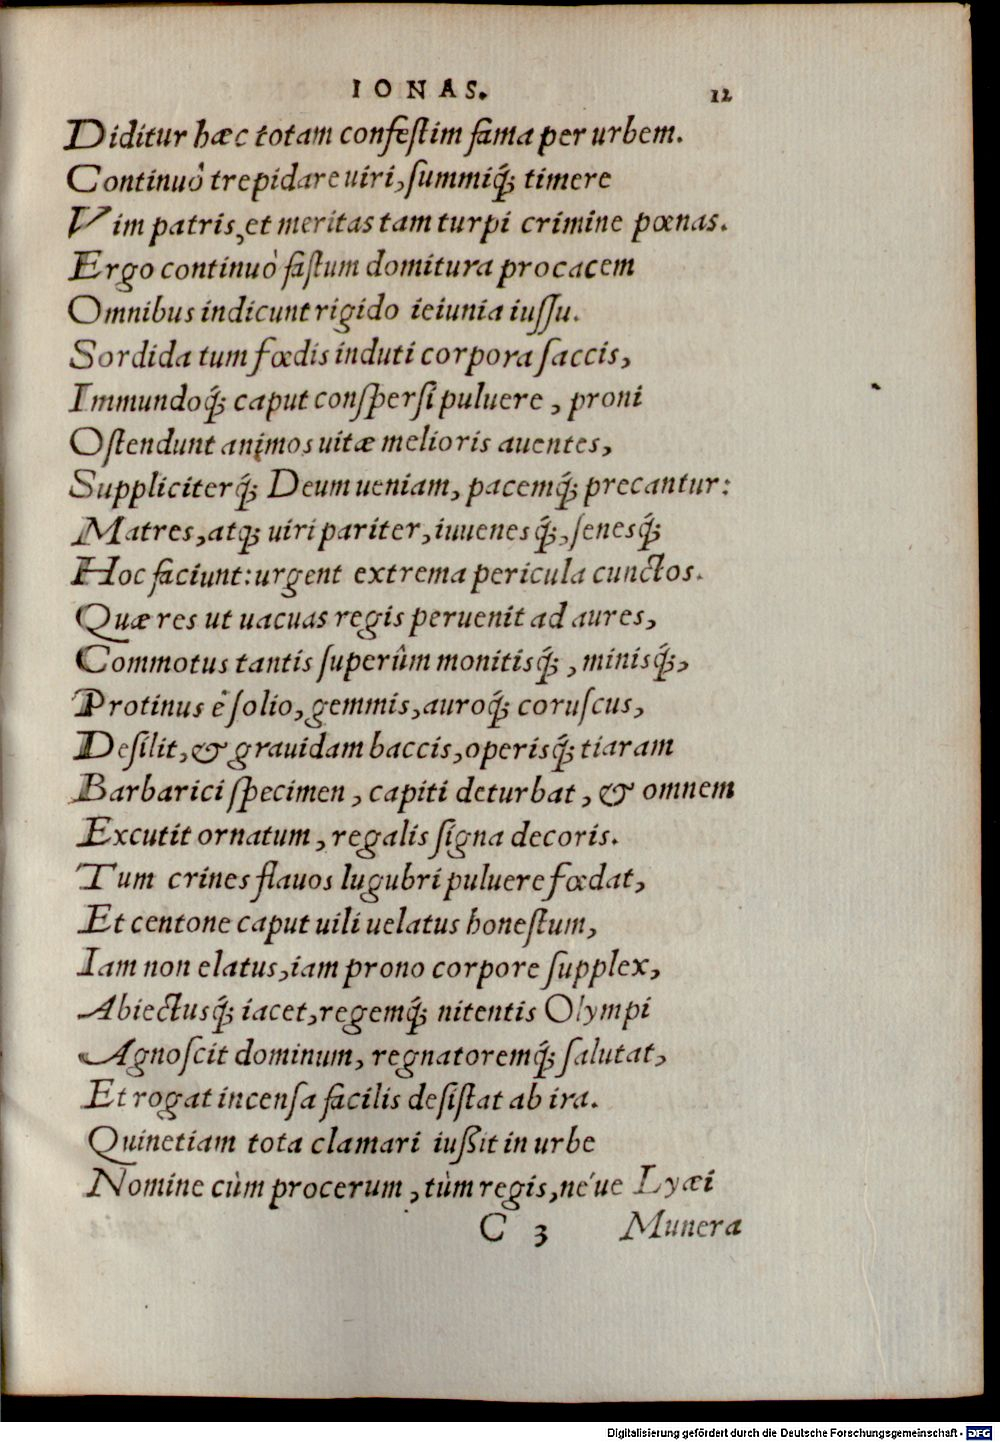 IONAS. 12
Diditur hæc totam confestim fama per urbem.
Continuò trepidare uiri, summiq́; timere
Vim patris, et meritas tam turpi crimine pœnas.
Ergo continuò fastum domitura procacem
Omnibus indicunt rigido ieiunia iussu.
Sordida tum fœdis induti corpora saccis,
Immundoq́; caput conspersi puluere, proni
Ostendunt animos uitæ melioris auentes,
Suppliciterq́; Deum ueniam, pacemq́; precantur:
Matres, atq; uiri pariter, iuuenesq́;, senesq́;
Hoc faciunt: urgent extrema pericula cunctos.
Quæ res ut uacuas regis peruenit ad aures,
Commotus tantis superûm monitisq́;, minisq́;,
Protinus è solio, gemmis, auroq́; coruscus,
Desilit, & grauidam baccis, operisq́; tiaram
Barbarici specimen, capiti deturbat, & omnem
Excutit ornatum, regalis signa decoris.
Tum crines flauos lugubri puluere fœdat,
Et centone caput uili uelatus honestum,
Iam non elatus, iam prono corpore supplex,
Abiectusq́; iacet, regemq́; nitentis Olympi
Agnoscit dominum, regnatoremq́; salutat,
Et rogat incensa facilis desistat ab ira.
Quinetiam tota clamari iußit in urbe
Nomine cùm procerum, tùm regis, né ue Lyæi
C 3 Munera
Digitalisierung gefördert durch die Deutsche Forschungsgemeinschaft - DFG